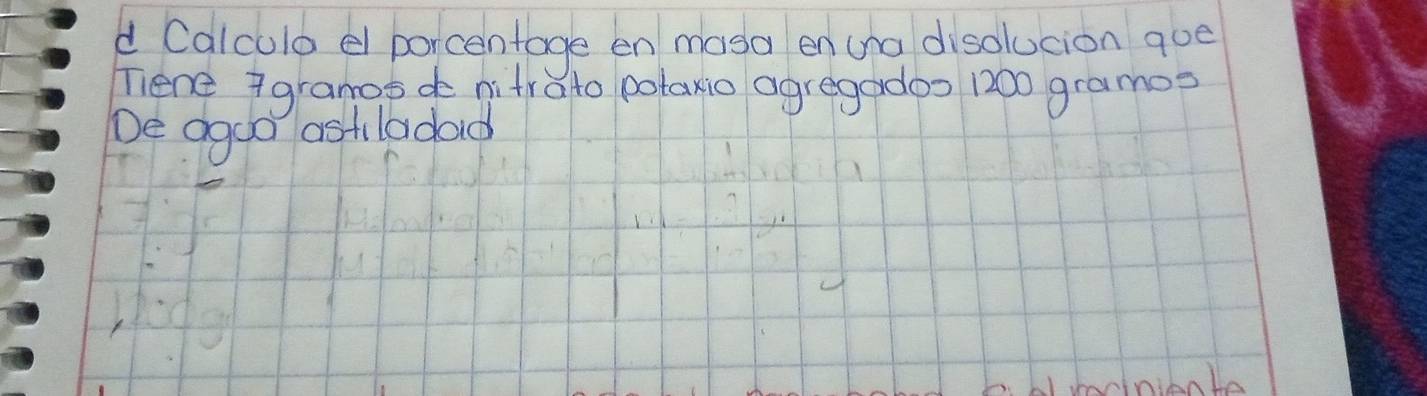 d Calculo el porcentage en masa en una disolución que
Tiene 7gramos de nitrato potaxio agregados 1200 gramos
De agua astiladad